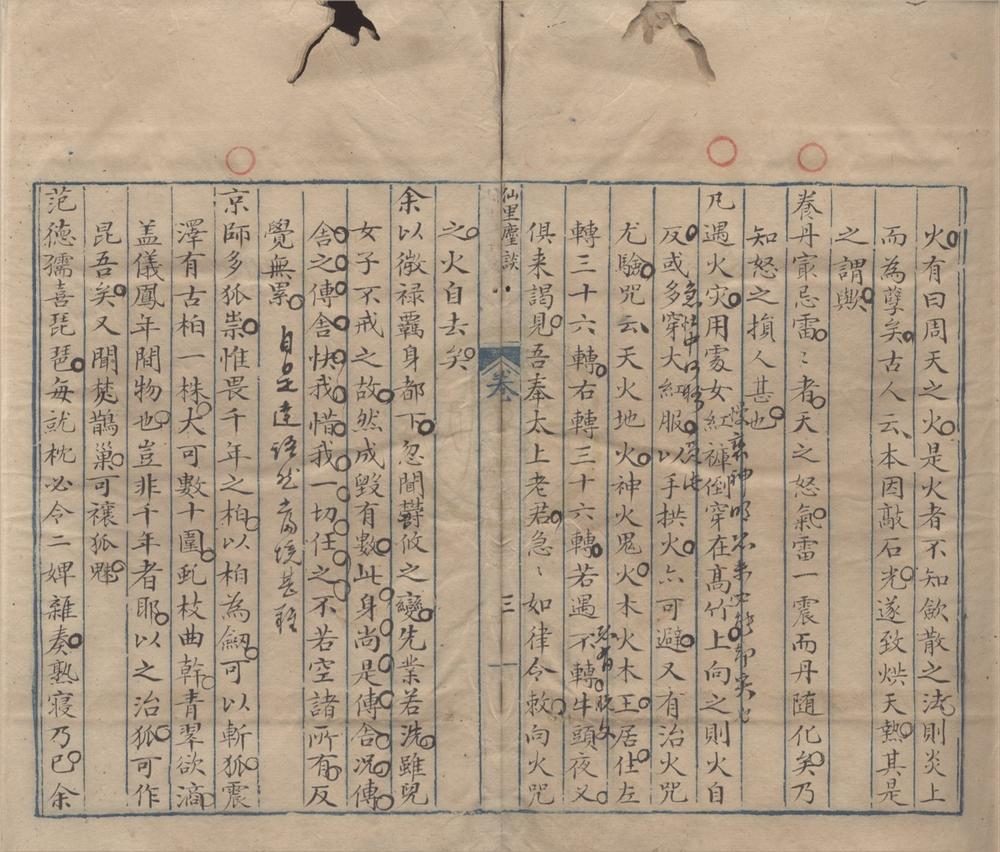 火有曰周天之火是火者不知歛散之法則炎上
而為孽矣古人云本因敲石光遂致烘天熱其是
之謂歟
養丹㝡忌雷〻者天之怒氣雷一震而丹随化矣乃
知怒之損人甚也
凡遇火灾用䖏女紅褲倒穿在髙竹上向之則火自
反或多穿大紅服以手拱火亦可避又有治火咒
尤驗咒云天火地火神火鬼火木火木王居仕左
轉三十六轉右轉三十六轉若遇不轉牛頭夜叉
俱来謁見吾奉太上老君急〻如律令敕向火咒
仙里塵談
卷
三
之火自去矣
余以微禄羈身都下忽聞欝攸之變先業若洗雖皃
女子不戒之故然成毀有數此身尚是傳舍况傳
舍之傳舍快我惜我一切任之不若空諸所有反
覺無累
自是達語然
京師多狐祟惟畏千年之柏以柏為劒可以斬狐震
澤有古柏一株大可數十圍虬枝曲幹青翠欲滴
盖儀鳳年間物也豈非千年者耶以之治狐可作
昆吾矣又聞焚鵲巢可禳狐魅
范德孺喜琵琶每就枕必令二婢雜奏熟寝乃已余